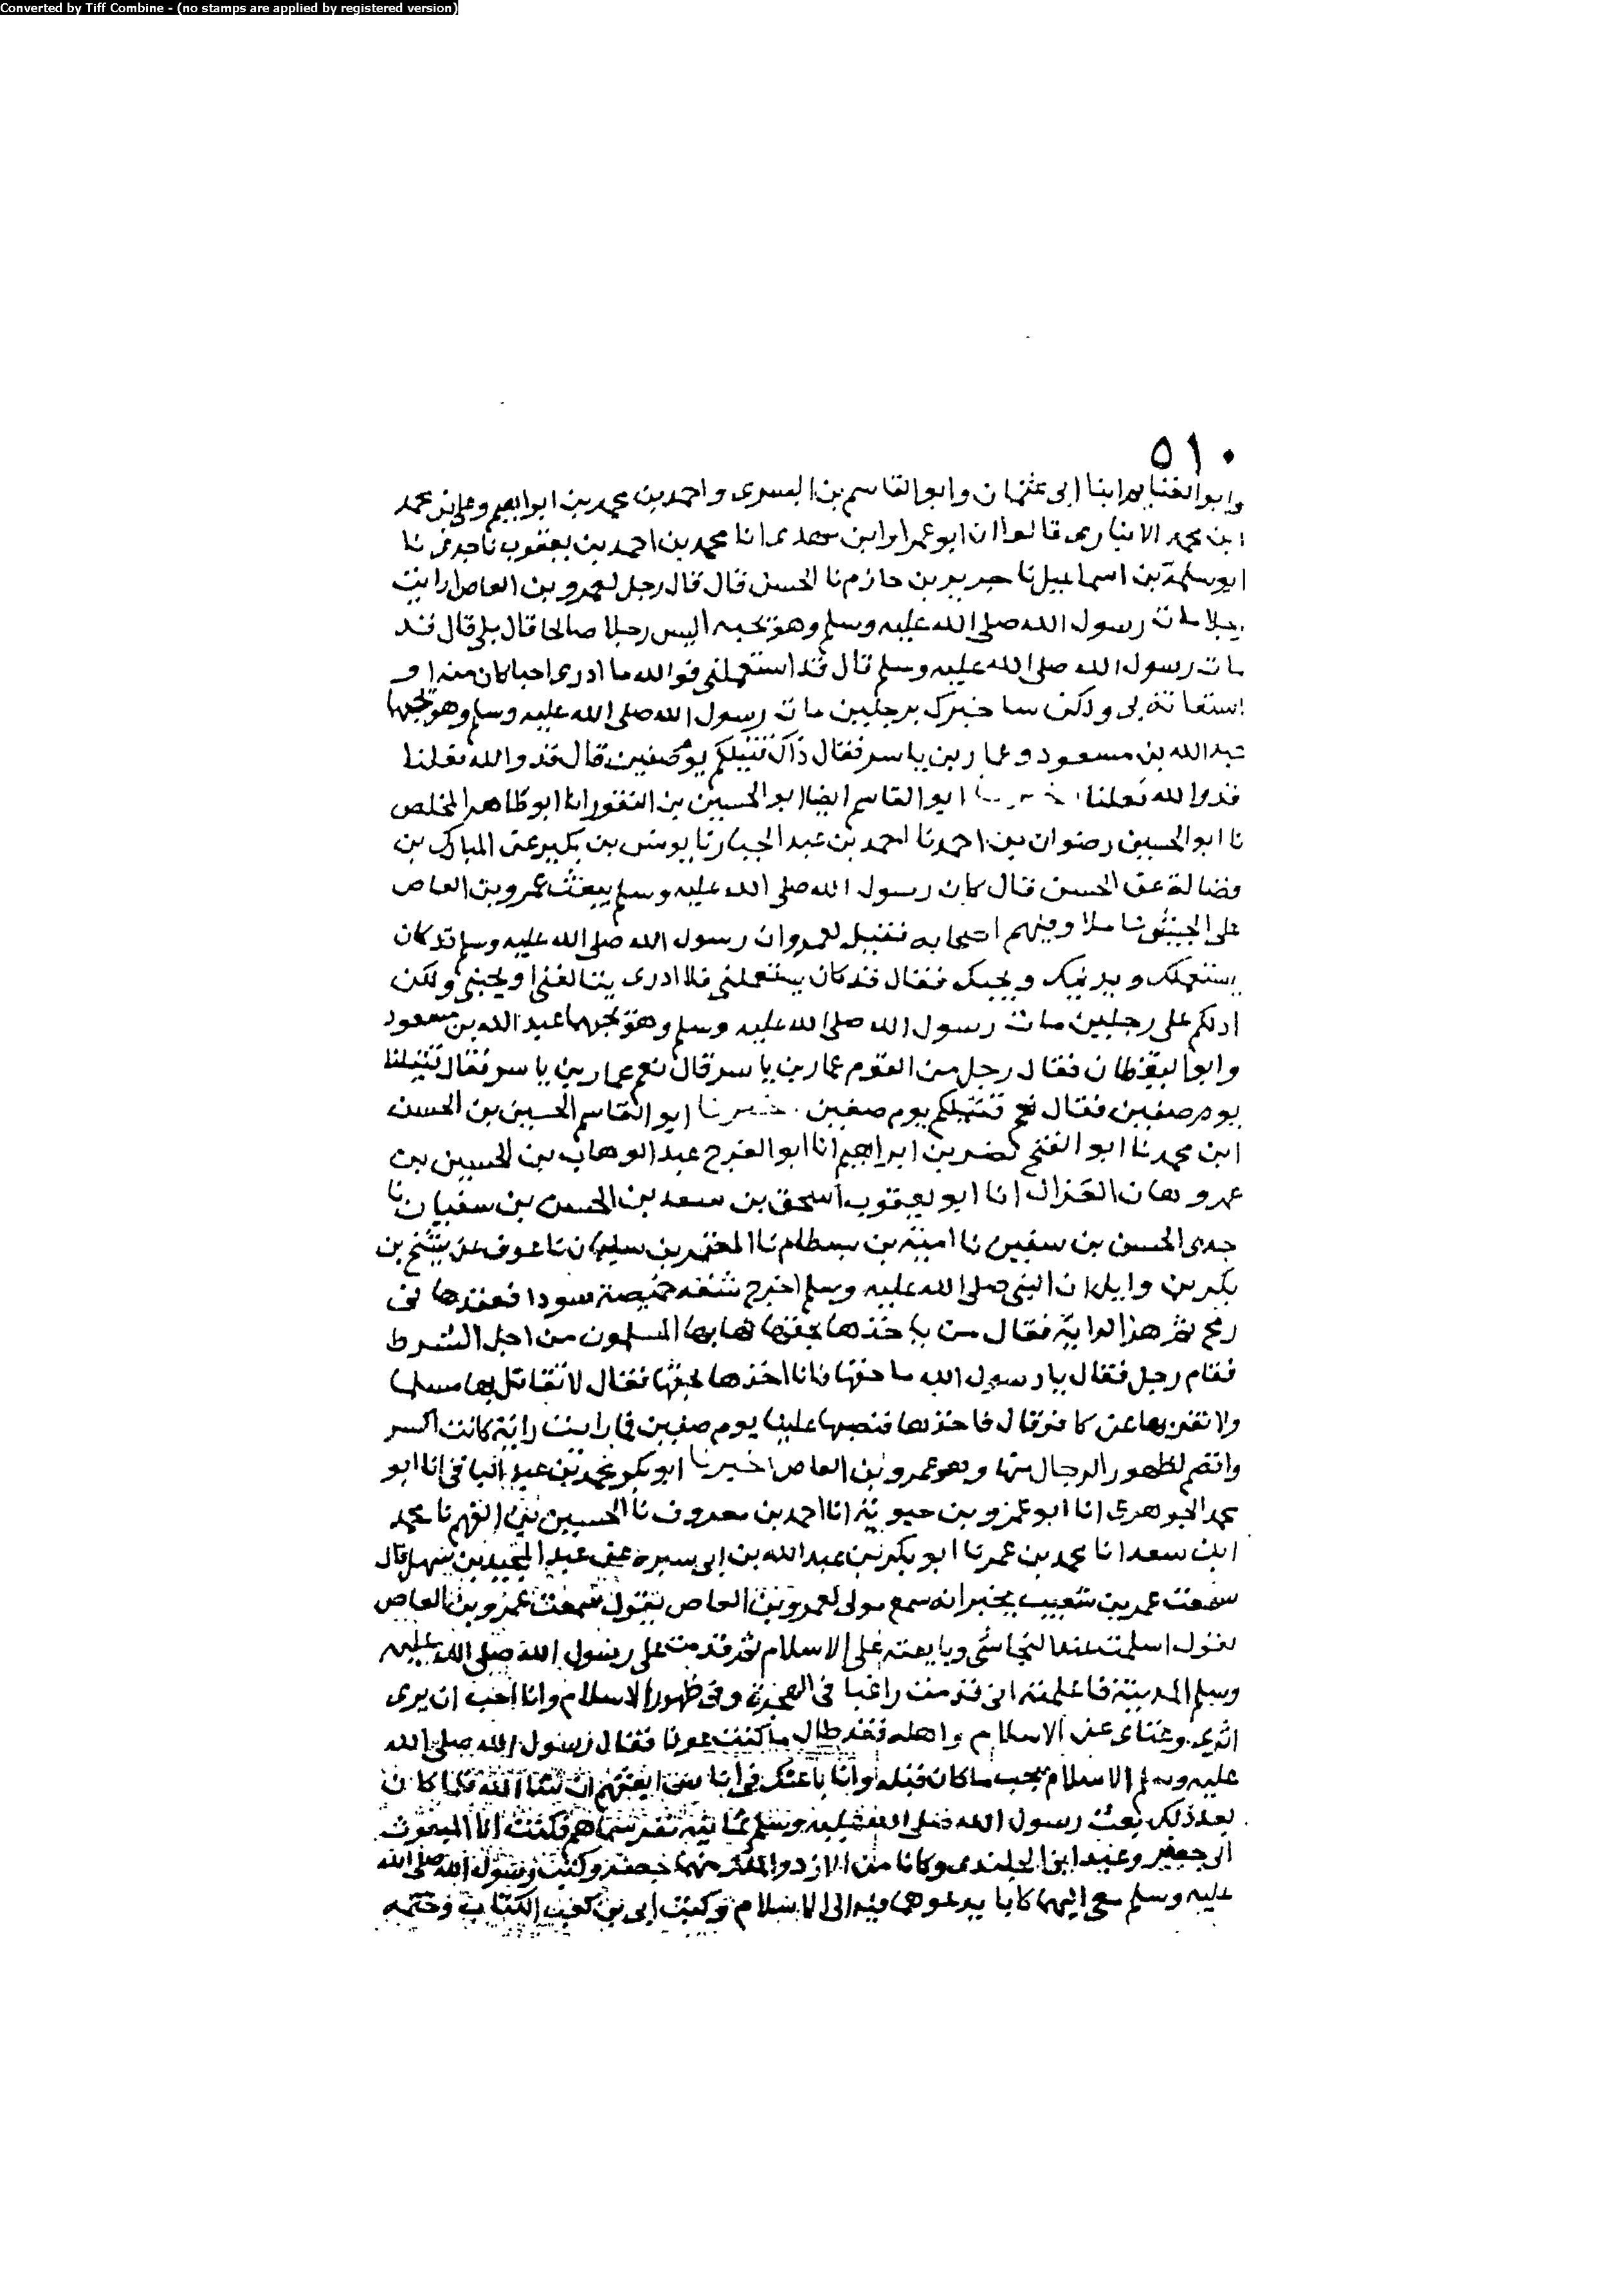 Converted by Tiff Combine - (no stamps are applied by registered version)
٥١٠
وابوا الغنايم ابنا ابى عثمان وابوالقاسم بن البسرى واحمد بن محمد بن ابراهيم وعلى بن محمد
ابن محمد الانبارى قالوا انا ابو عمر ابن مهدى انا محمد بن احمد بن يعقوب نا جدى نا
ابو سلمة بن اسماعيل نا جرير بن حازم نا الحسن قال قال رجل لعمرو بن العاص ارايت
رجلا مات رسول الله صلى الله عليه وسلم وهو يحبه اليس رجلا صالحا قال بلى قال قد
مات رسول الله صلى الله عليه وسلم قال قد استعملنى فوالله ما ادرى احبا كان منه او
استعانة بى ولكن سا خبرك برجلين مات رسول الله صلى الله عليه وسلم وهو يحبهما
عبد الله بن مسعود وعمار بن ياسر فقال ذاك قتيلكم يوم صفين قال قد والله فعلنا
قد والله فعلنا ابو القاسم ايضا ابو الحسين بن النقور انا ابو طاهر المخلص
نا ابو الحسين رضوان بن احمد نا احمد بن عبد الجبار نا يونس بن بكير عن المبارك بن
فضالة عن الحسن قال كان رسول الله صلى الله عليه وسلم يبعث عمرو بن العاص
على الجيش عاملا وفيهم اصحابه فقيل لعمرو ان رسول الله صلى الله عليه وسلم قد كان
يستعملك ويدنيك ويحبك فقال قد كان يستعملنى فلا ادرى يتالفنى او يحبنى ولكن
ادلكم على رجلين مات رسول الله صلى الله عليه وسلم وهو يحبهما عبد الله بن مسعود
وابو اليقظان فقال رجل من القوم عمار بن ياسر قال نعم عمار بن ياسر فقال قتيلنا
يوم صفين فقال نعم قتيلكم يوم صفين خبرنا ابو القاسم الحسين بن الحسن
ابن محمد نا ابو الفتح نصر بن ابراهيم انا ابو الفرج عبد الوهاب بن الحسين بن
عمر وهان الغزال انا ابو يعقوب اسحق بن سعد بن الحسن بن سفيان نا
جدى الحسن بن سفين نا امية بن بسطام نا المعتمر بن سليمان نا عوف عن شيخ بن
بكر بن وايل ان النبى صلى الله عليه وسلم اخرج شقه خميصة سودا فعقدها فى
رمح ثم هز الراية فقال من ياخذها بحقها فهابها المسلمون من اجل الشرط
فقام رجل فقال يا رسول الله ما حقها فانا اخذها بحقها فقال لا تقاتل بها مسلما
ولا تفر بها عن كافر قال فاخذها فنصبها علينا يوم صفين فما رايت راية كانت اكسر
واقصم لظهور الرجال منها وهو عمرو بن العاص اخبرنا ابو بكر محمد بن عبد الباقى انا ابو
محمد الجوهرى انا ابو عمرو بن حيوية انا احمد بن معروف نا الحسين بن الفهم نا محمد
ابن سعد انا محمد بن عمر نا ابو بكر بن عبد الله بن ابى سبرة عن عبد المجيد بن سهيل قال
سمعت عمر بن شعيب يخبر انه سمع مولى لعمرو بن العاص يقول سمعت عمرو بن العاص
يقول اسلمت عند النجاشى وبايعته على الاسلام ثم قدمت على رسول الله صلى الله عليه
وسلم المدينة فاعلمته انى قدمت راغبا فى الهجرة وفى ظهور الاسلام وانا احب ان يرى
اثرى وغناى عن الاسلام واهله فقد طال ما كنت عونا فقال رسول الله صلى الله
عليه وسلم الاسلام يجب ما كان قبله وانا باعثك فى انا س ابعثهم ان شا الله فلما كان
بعد ذلك بعث رسول الله صلى الله عليه وسلم ثمانية نفر سماهم فكنت انا المبعوث
الى جعفر وعبد ابنا الجلندى وكانا من الازد والملك منهما جيفر وكتب رسول الله صلى الله
عليه وسلم معى اليهما كتابا يدعوهما فيه الى الاسلام وكتب ابى بن كعب الكتاب وختمه